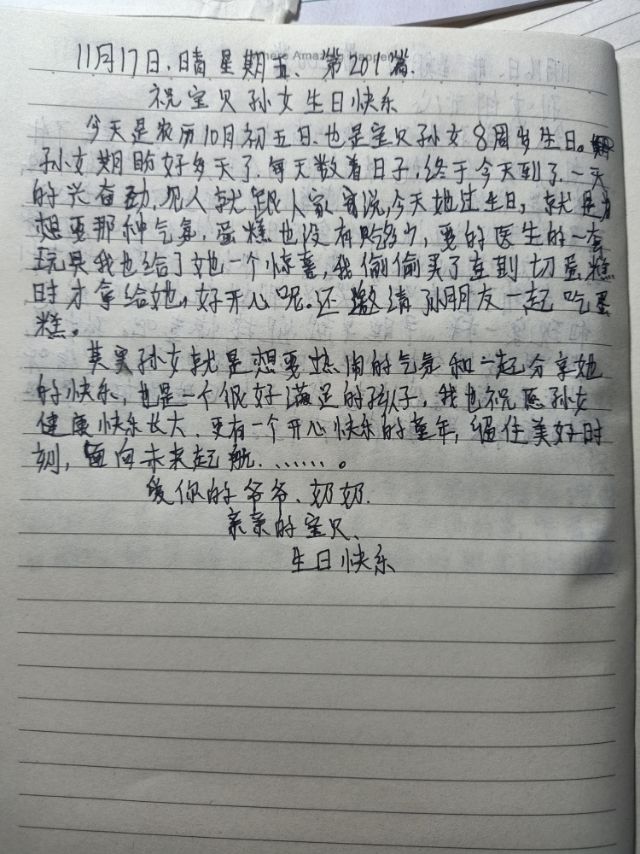 11月17日.晴 星期五、第201篇.
祝宝贝孙女生日快乐
今天是农历10月初五日.也是宝贝孙女8周岁生日。
孙女期盼好多天了.每天数着日子,终于今天到了.一天
的兴奋劲,见人就跟人家说,今天她过生日,就是为
想要那种气氛.蛋糕也没有吃多少,要的医生的一套
玩具我也给了她一个惊喜,我偷偷买了直到切蛋糕
时才拿给她,好开心呢.还邀请孙朋友一起吃蛋
糕。
其实孙女就是想要热闹的气氛和一起分享她
的快乐,也是一个很好满足的孩子,我也祝愿孙女
健康快乐长大.更有一个开心快乐的童年,留住美好时
刻,面向未来起航.……。
爱你的爷爷、奶奶.
亲亲的宝贝、
生日快乐